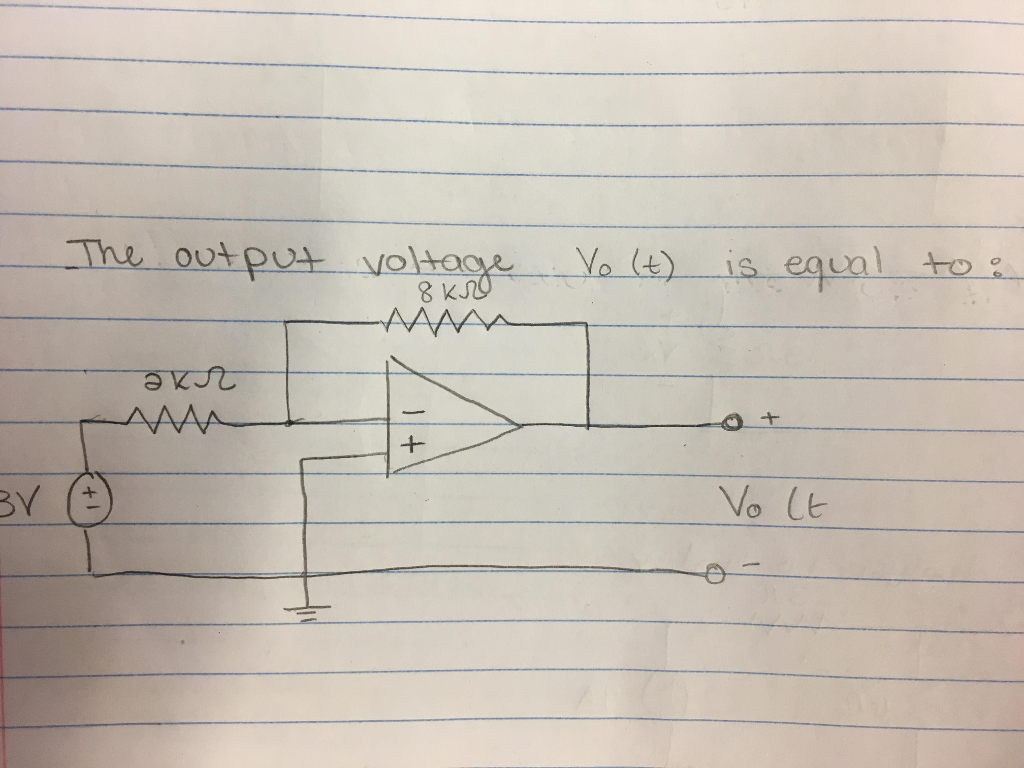 The output voltage Vo (t) is equal to:
8 KΩ
2KΩ
−
+
+
3V
+
−
Vo (t
−